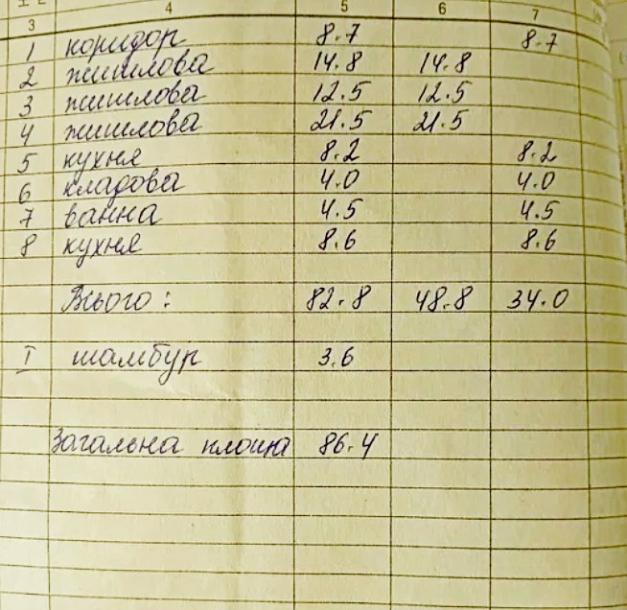 3 4 5 6 7
1 коридор 8.7 8.7
2 житлова 14.8 14.8
3 житлова 12.5 12.5
4 житлова 21.5 21.5
5 кухня 8.2 8.2
6 кладова 4.0 4.0
7 ванна 4.5 4.5
8 кухня 8.6 8.6
Всього: 82.8 48.8 34.0
I тамбур 3.6
Загальна площа 86.4